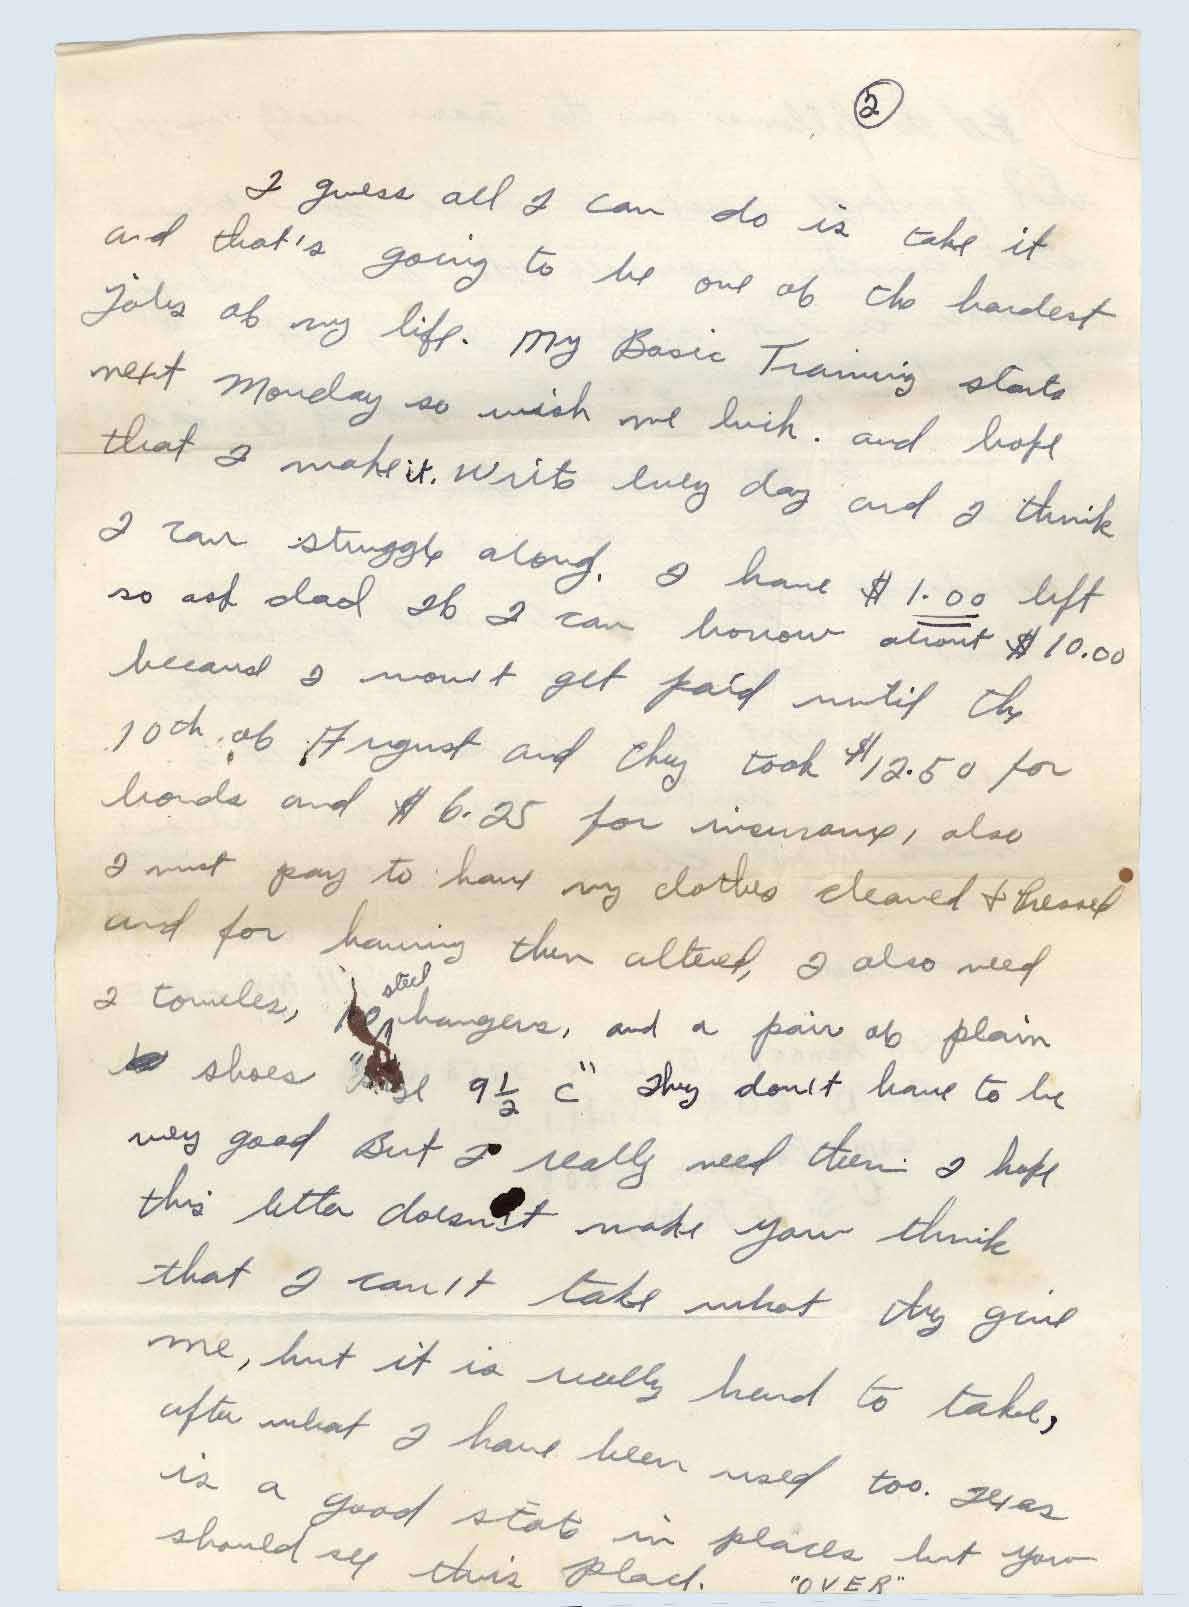 2
I guess all I can do is take it
and that's going to be one of the hardest
jobs of my life. My Basic Training starts
next Monday so wish me luck. and hope
that I make it. Write every day and I think
I can struggle along. I have $1.00 left
so ask dad If I can borrow about $10.00
because I won't get paid until the
10th of August and they took $12.50 for
bonds and $6.25 for insurance, also
I must pay to have my clothes cleaned & Pressed
and for having them altered, I also need
2 toweles, 10 steel hangers, and a pair of plain
shoes "size 9½ C" They don't have to be
very good But I really need them I hope
this letter doesn't make you think
that I can't take what they give
me, but it is really hard to take,
after what I have been used too. Texas
is a good state in places but you
should see this place. "OVER"